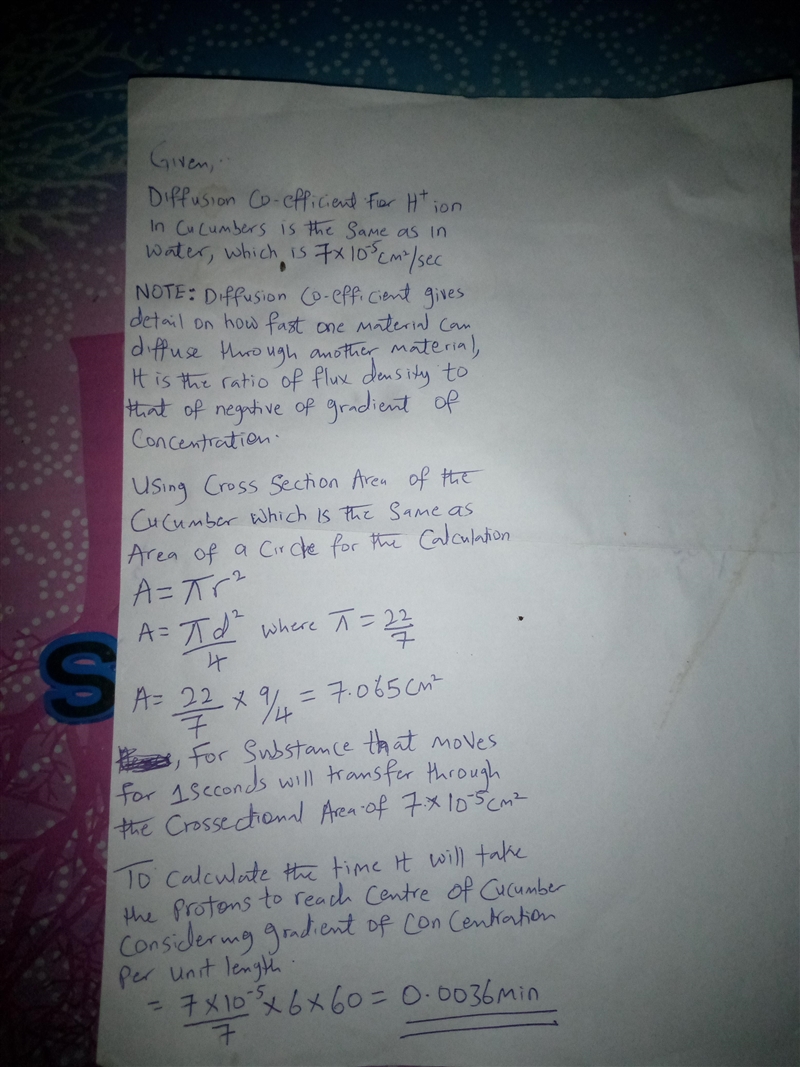 Given,..
Diffusion Co-efficient for H⁺ ion
In Cucumbers is the same as in
Water, which is 7×10⁻⁵cm²/sec
NOTE: Diffusion Co-efficient gives
detail on how fast one material can
diffuse through another material,
It is the ratio of flux density to
that of negative of gradient of
Concentration.
Using Cross Section Area of the
Cucumber which Is the Same as
Area of a Circle for the Calculation
A = πr²
A = πd²/4 where π = 22/7
A = 22/7 × 9/4 = 7.065cm²
, For Substance that moves
for 1seconds will transfer through
the Crossectional Area of 7×10⁻⁵cm²
To Calculate the time It will take
the Protons to reach Centre of Cucumber
Considering gradient of Concentration
Per unit length.
= 7×10⁻⁵/7 × 6 × 60 = 0.0036min
S